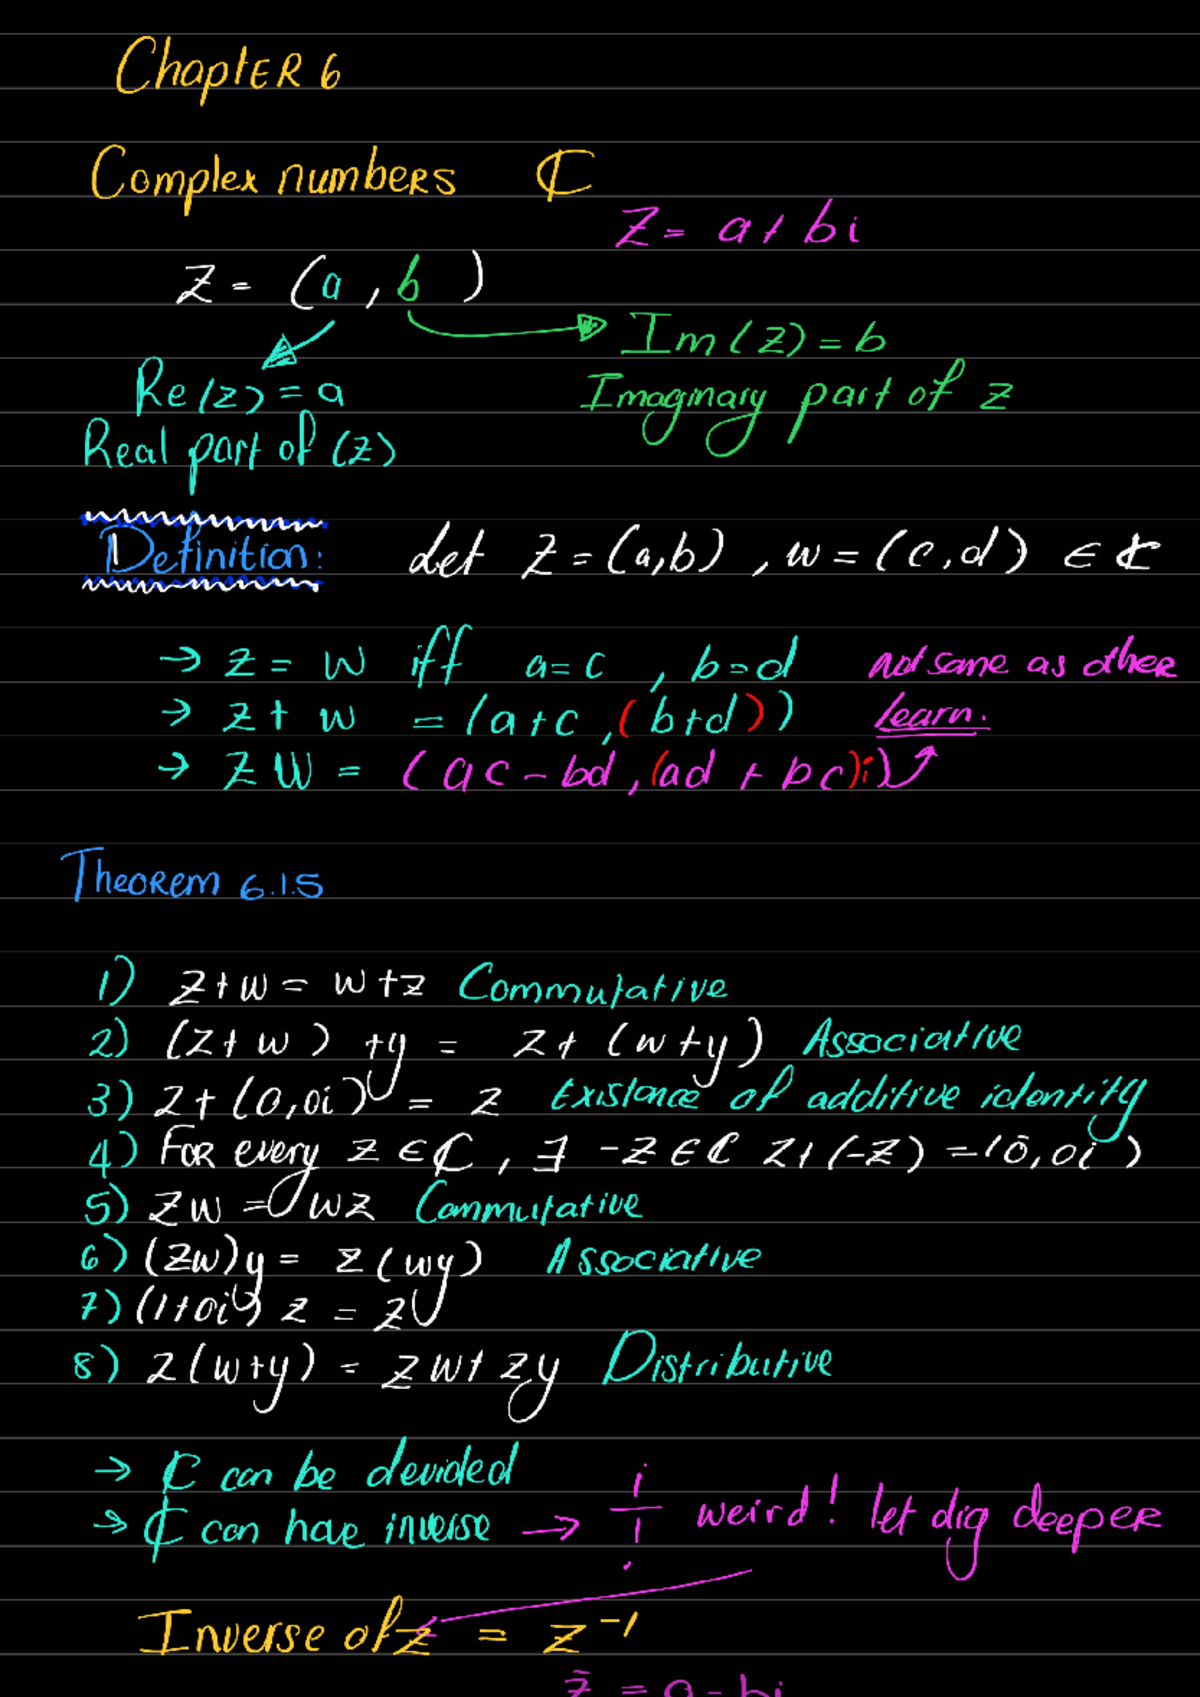 ChaptER 6
Complex numbers ℂ
Z = a + bi
Z = (a, b)
Im(Z) = b
Re(z) = a
Imaginary part of z
Real part of (z)
Definition: Let Z = (a,b), w = (c,d) ∈ ℂ
→ z = w iff a = c, b = d not same as other
→ z + w = (a+c, (b+d)) learn.
→ ZW = (ac - bd, (ad + bc)i)
Theorem 6.1.5
1) z+w = w+z Commutative
2) (z+w)+y = z+(w+y) Associative
3) z+(0,0i) = z Existance of additive identity
4) For every z ∈ ℂ, ∃ -z ∈ ℂ z+(-z) = (0,0i)
5) zw = wz Commutative
6) (zw)y = z(wy) Associative
7) (1+0i) z = z
8) z(w+y) = zw + zy Distributive
→ ℂ can be devided
→ ℂ can have inverse → i/i weird! let dig deeper
Inverse of z = z⁻¹
z̄ = a - bi